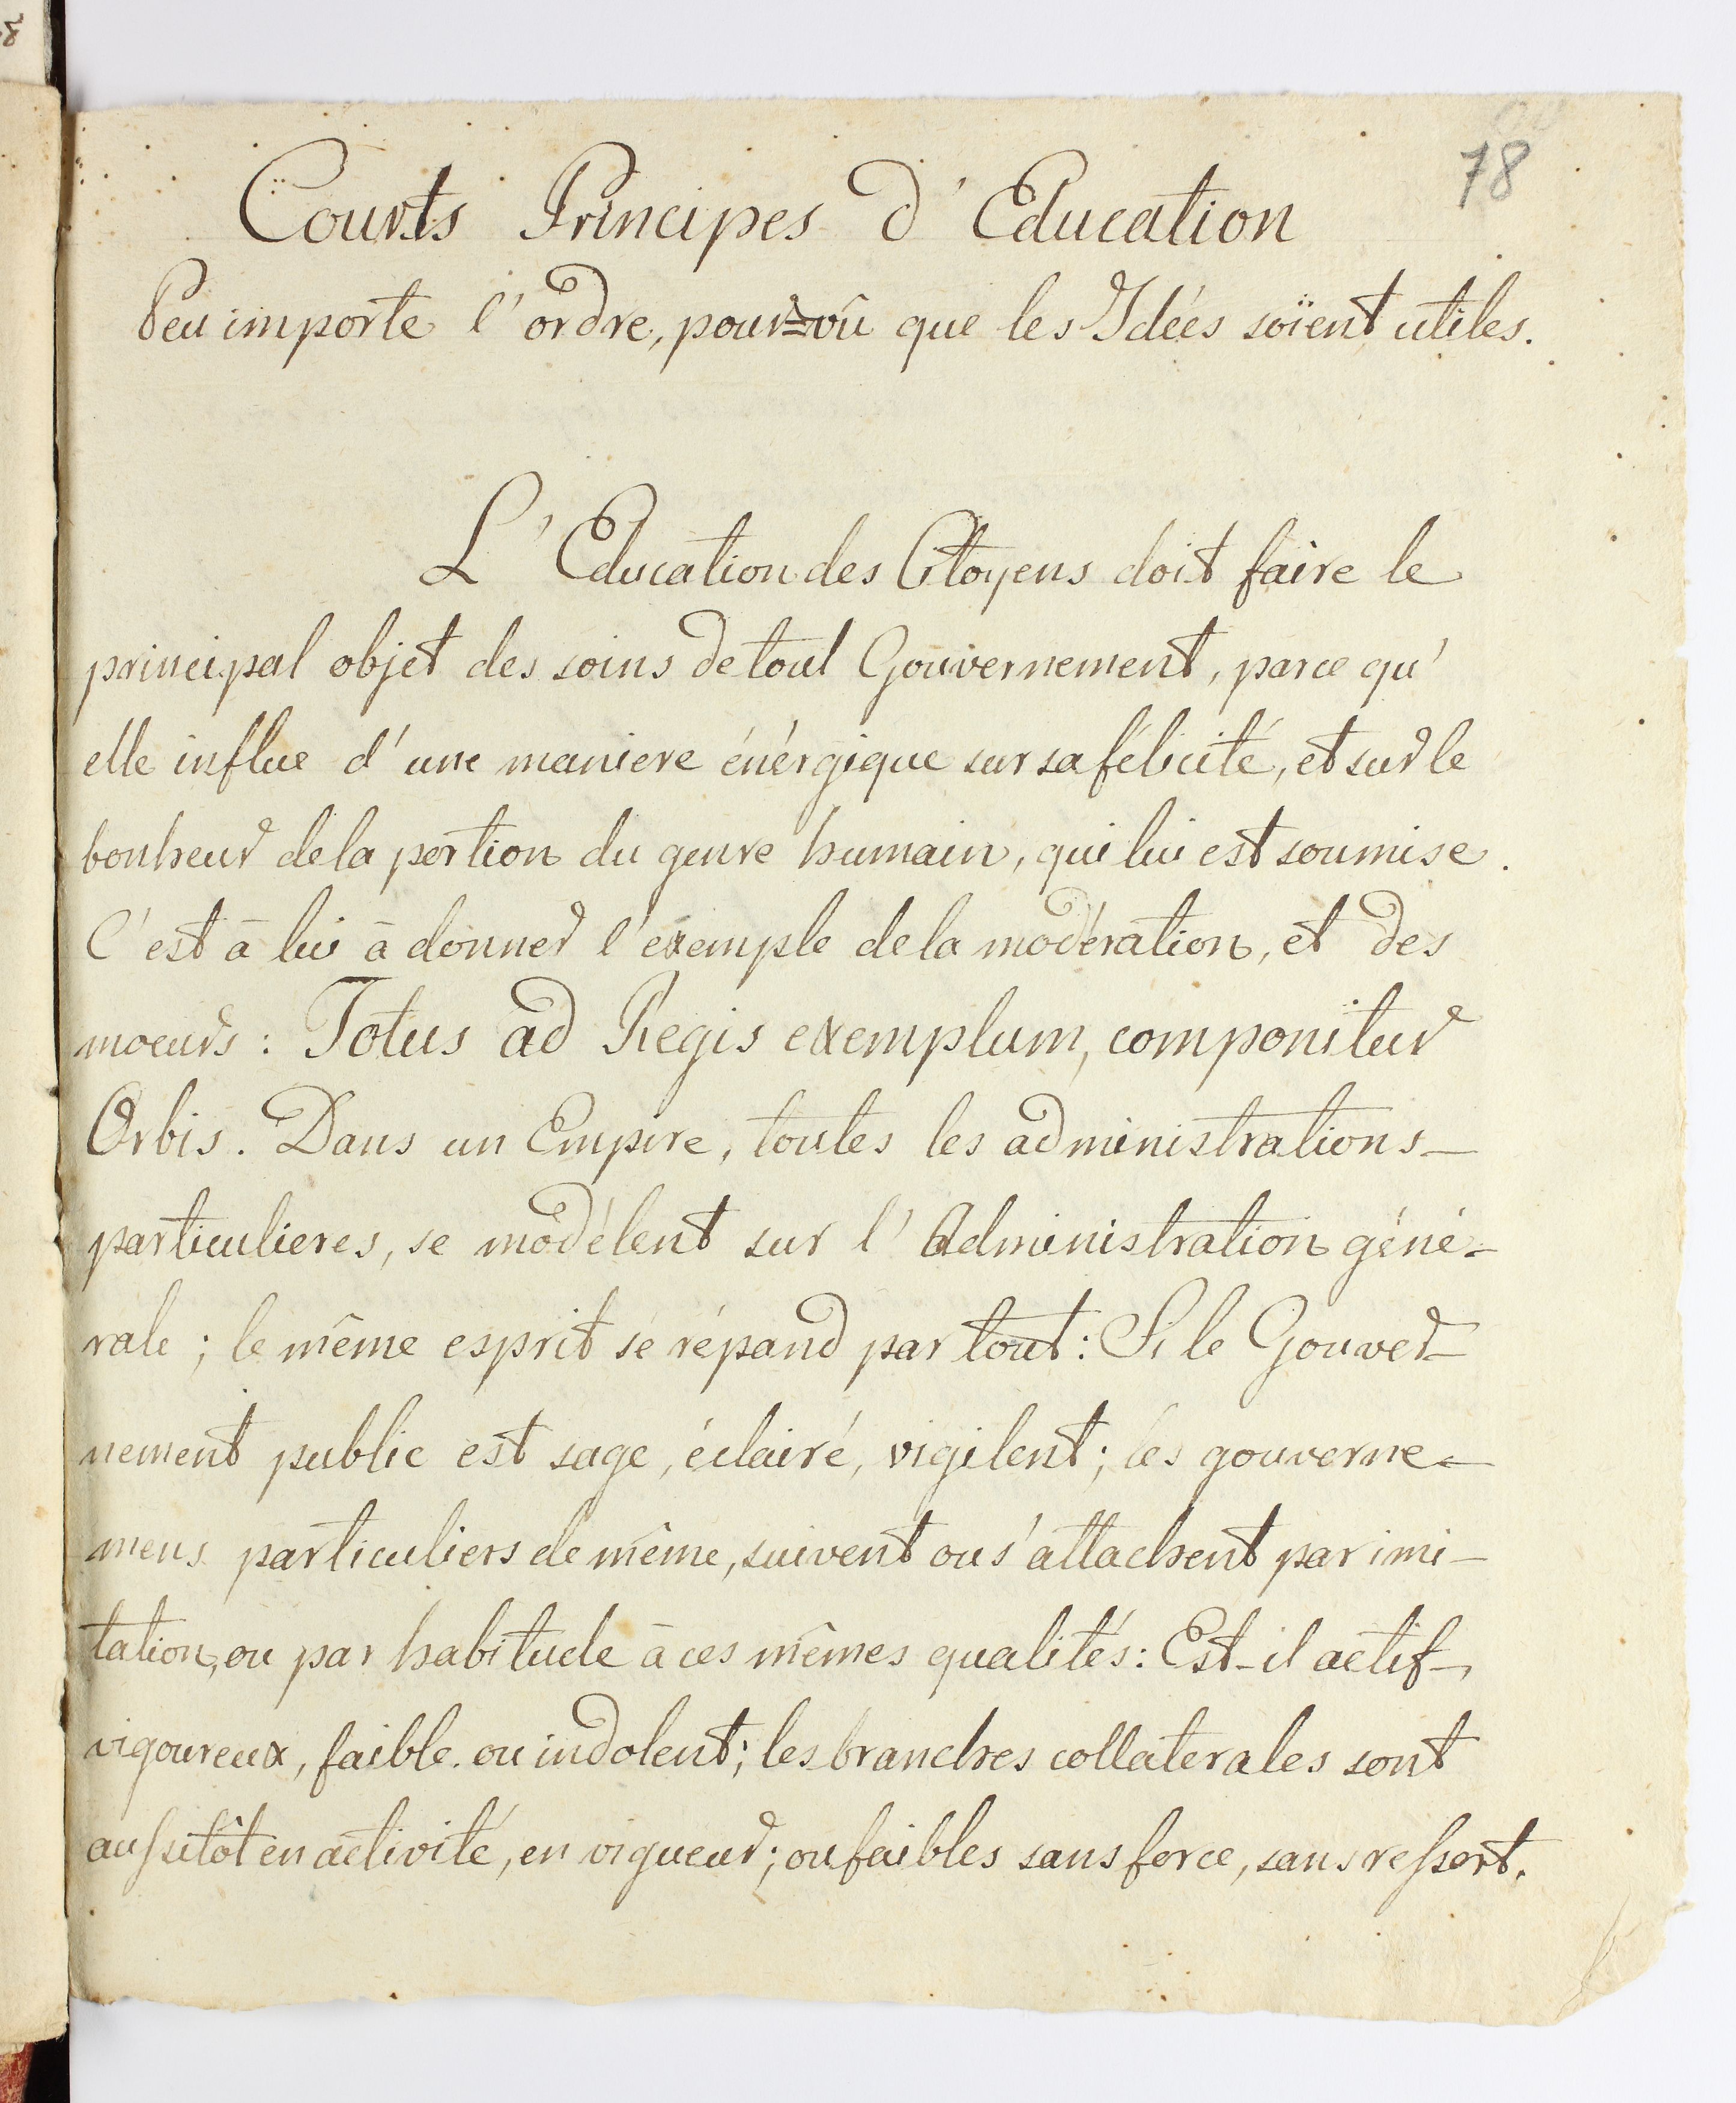 78
Courts Principes d'Education
Peu importe l'ordre, pourvû que les Idées soïent utiles.
L'Education des Citoyens doit faire le
principal objet des soins de tout Gouvernement, parce qu'
elle influe d'une maniere énérgique sur sa félicité, et sur le
bonheur de la portion du genre humain, qui lui est soumise.
C'est à lui à donner l'exemple de la modération, et des
moeurs : Totus ad Regis exemplum, componitur
Orbis. Dans un Empire, toutes les administrations_
particulieres, se modèlent sur l'Administration géné-
rale ; le même esprit se répand par tout : Si le Gouver-
nement public est sage, éclairé, vigilent ; les gouverne-
mens particuliers de même, suivent ou s'attachent par imi-
tation, ou par habitude à ces mêmes qualités : Est-il actif,
vigoureux, faible ou indolent ; les branches collaterales sont
aussitôt en activité, en vigueur ; ou faibles sans force, sans ressort.